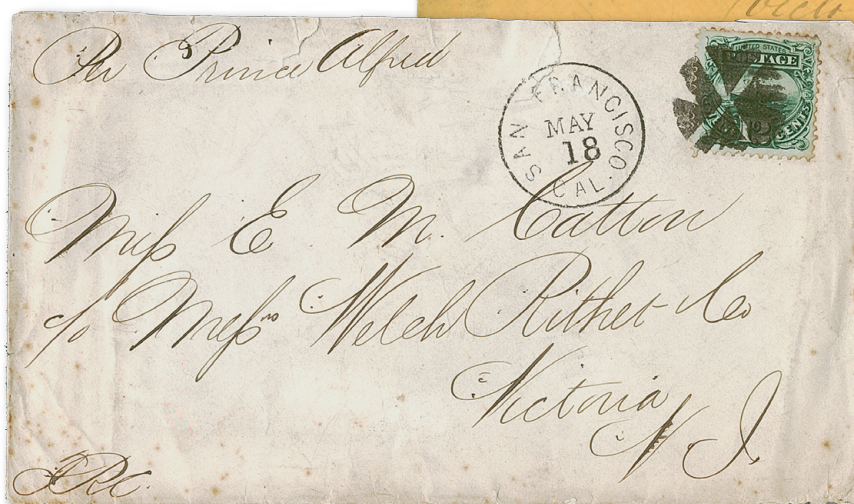 Per Prince Alfred
SAN FRANCISCO
MAY
18
CAL.
UNITED STATES
POSTAGE
CENTS
Miss E. M. Catton
c/o Messrs Welch Rithet & Co
Victoria
V I.